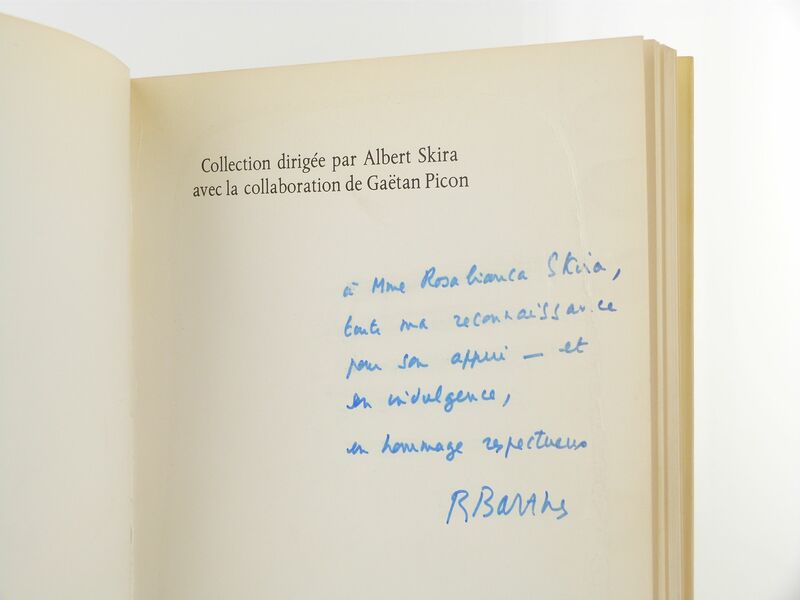 Collection dirigée par Albert Skira
avec la collaboration de Gaëtan Picon
à Mme Rosabianca Skira,
toute ma reconnaissance
pour son appui — et
son indulgence,
en hommage respectueux
RBarthes